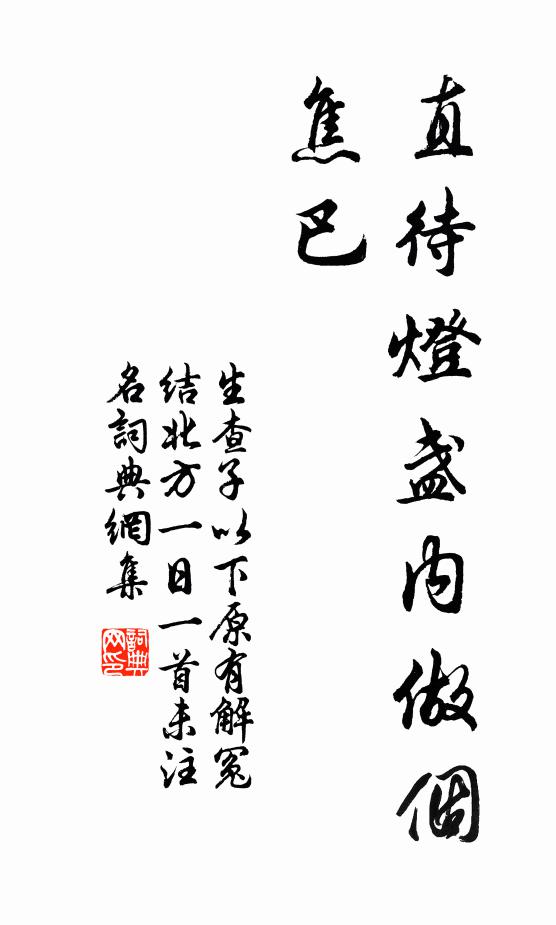 直待燈盏內做個
焦巴
生查子以下原有解冤
结北方一日一首未注
名詞典網集
詞典网印